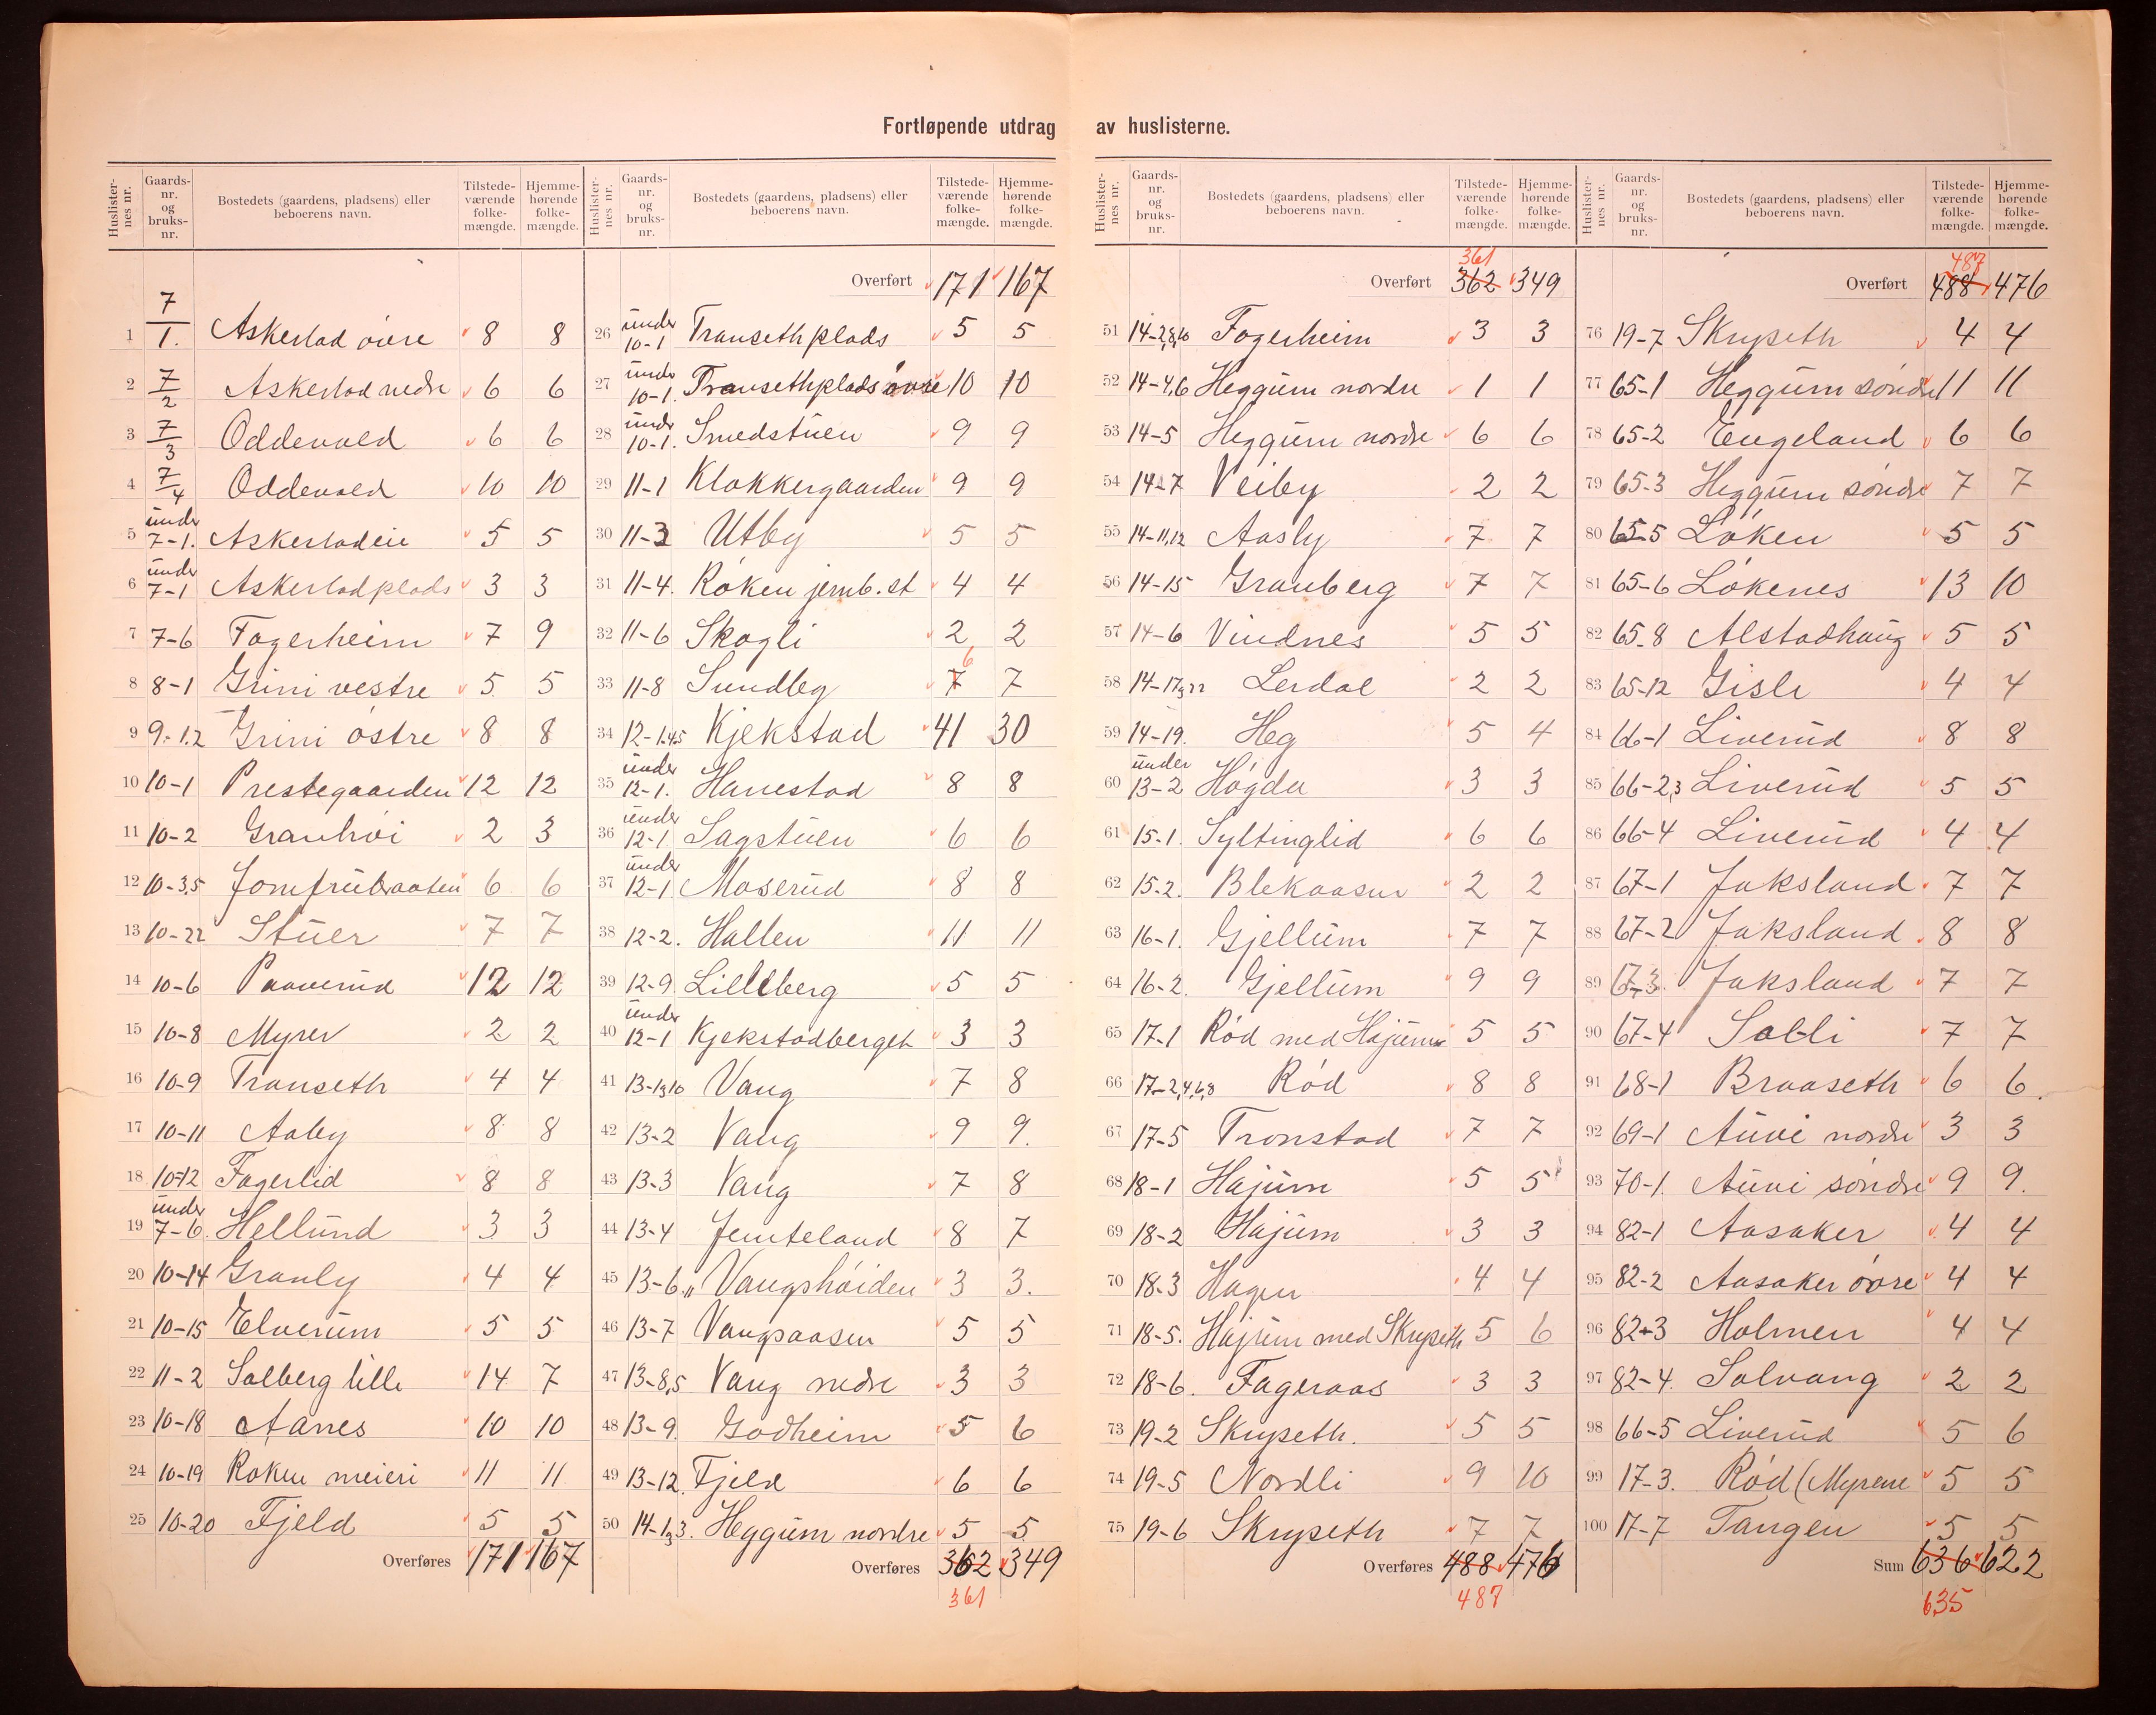 Fortløpende utdrag av huslisterne.
Huslisternes nr. Gaards-nr. og bruks-nr. Bostedets (gaardens, pladsens) eller beboerens navn. Tilstedeværende folkemængde. Hjemmehørende folkemængde.
1 7/1. Askestad øvre 8 8
2 7/2 Askestad nedre 6 6
3 7/3 Oddevold 6 6
4 7/4 Oddevold 10 10
5 under 7-1. Askestadeie 5 5
6 under 7-1 Askestadplads 3 3
7 7-6 Fagerheim 7 9
8 8-1 Grini vestre 5 5
9 9-1.2 Grini østre 8 8
10 10-1 Prestegaarden 12 12
11 10-2 Granhøi 2 3
12 10-3,5 Jomfrubraaten 6 6
13 10-22 Stuer 7 7
14 10-6 Paaverud 12 12
15 10-8 Myrer 2 2
16 10-9 Transeth 4 4
17 10-11 Aaby 8 8
18 10-12 Fagerlid 8 8
19 under 7-6. Hellund 3 3
20 10-14 Granly 4 4
21 10-15 Elverum 5 5
22 11-2 Solberg lille 14 7
23 10-18 Aanes 10 10
24 10-19 Røken meieri 11 11
25 10-20 Fjeld 5 5
Overføres 171 167
Huslisternes nr. Gaards-nr. og bruks-nr. Bostedets (gaardens, pladsens) eller beboerens navn. Tilstedeværende folkemængde. Hjemmehørende folkemængde.
Overført 171 167
26 under 10-1 Transethplads 5 5
27 under 10-1. Transethplads øvre 10 10
28 under 10-1. Smedstuen 9 9
29 11-1 Klokkergaarden 9 9
30 11-3 Utby 5 5
31 11-4. Røken jernb. st 4 4
32 11-6 Skogli 2 2
33 11-8 Sundby 7 6 7
34 12-1,4,5 Kjekstad 41 30
35 under 12-1. Hanestad 8 8
36 under 12-1 Sagstuen 6 6
37 under 12-1 Moserud 8 8
38 12-2. Hallen 11 11
39 12-9. Lilleberg 5 5
40 under 12-1 Kjekstadberget 3 3
41 13-1,10 Vang 7 8
42 13-2 Vang 9 9.
43 13-3 Vang 7 8
44 13-4 Jemteland 8 7
45 13-6,11 Vangshøiden 3 3.
46 13-7 Vangsaasen 5 5
47 13-8,5 Vang nedre 3 3
48 13-9. Godheim 5 6
49 13-12. Fjeld 6 6
50 14-1,3. Heggum nordre 5 5
Overføres 362 349
361
Huslisternes nr. Gaards-nr. og bruks-nr. Bostedets (gaardens, pladsens) eller beboerens navn. Tilstedeværende folkemængde. Hjemmehørende folkemængde.
361
Overført 362 349
51 14-2,8,10 Fagerheim 3 3
52 14-4,6 Heggum nordre 1 1
53 14-5 Heggum nordre 6 6
54 14-7 Veiby 2 2
55 14-11,12 Aasly 7 7
56 14-15 Granberg 7 7
57 14-6 Vindnes 5 5
58 14-17,22 Lerdal 2 2
59 14-19. Heg 5 4
60 under 13-2 Høgda 3 3
61 15-1. Syltinglid 6 6
62 15-2. Blekaasen 2 2
63 16-1. Gjellum 7 7
64 16-2. Gjellum 9 9
65 17-1 Rød med Hajum 5 5
66 17-2,4,6,8 Rød 8 8
67 17-5 Tronstad 7 7
68 18-1 Hajum 5 5
69 18-2 Hajum 3 3
70 18-3 Hagen 4 4
71 18-5. Hajum med Skryseth 5 6
72 18-6. Fageraas 3 3
73 19-2 Skryseth. 5 5
74 19-5 Nordli 9 10
75 19-6 Skryseth 7 7
Overføres 488 476
487
Huslisternes nr. Gaards-nr. og bruks-nr. Bostedets (gaardens, pladsens) eller beboerens navn. Tilstedeværende folkemængde. Hjemmehørende folkemængde.
487
Overført 488 476
76 19-7 Skryseth 4 4
77 65-1 Heggum søndre 11 11
78 65-2 Engeland 6 6
79 65-3 Heggum søndre 7 7
80 65-5 Løken 5 5
81 65-6 Løkenes 13 10
82 65-8 Alstadhaug 5 5
83 65-12 Gisle 4 4
84 66-1 Liverud 8 8
85 66-2,3 Liverud 5 5
86 66-4 Liverud 4 4
87 67-1 Jaksland 7 7
88 67-2 Jaksland 8 8
89 67-3. Jaksland 7 7
90 67-4 Solli 7 7
91 68-1 Braaseth 6 6.
92 69-1 Auvi nordre 3 3
93 70-1. Auvi søndre 9 9.
94 82-1 Aasaker 4 4
95 82-2 Aasaker øvre 4 4
96 82-3 Holmen 4 4
97 82-4. Solvang 2 2
98 66-5 Liverud 5 6
99 17-3. Rød (Myrene 5 5
100 17-7 Tangen 5 5
Sum 636 622
635